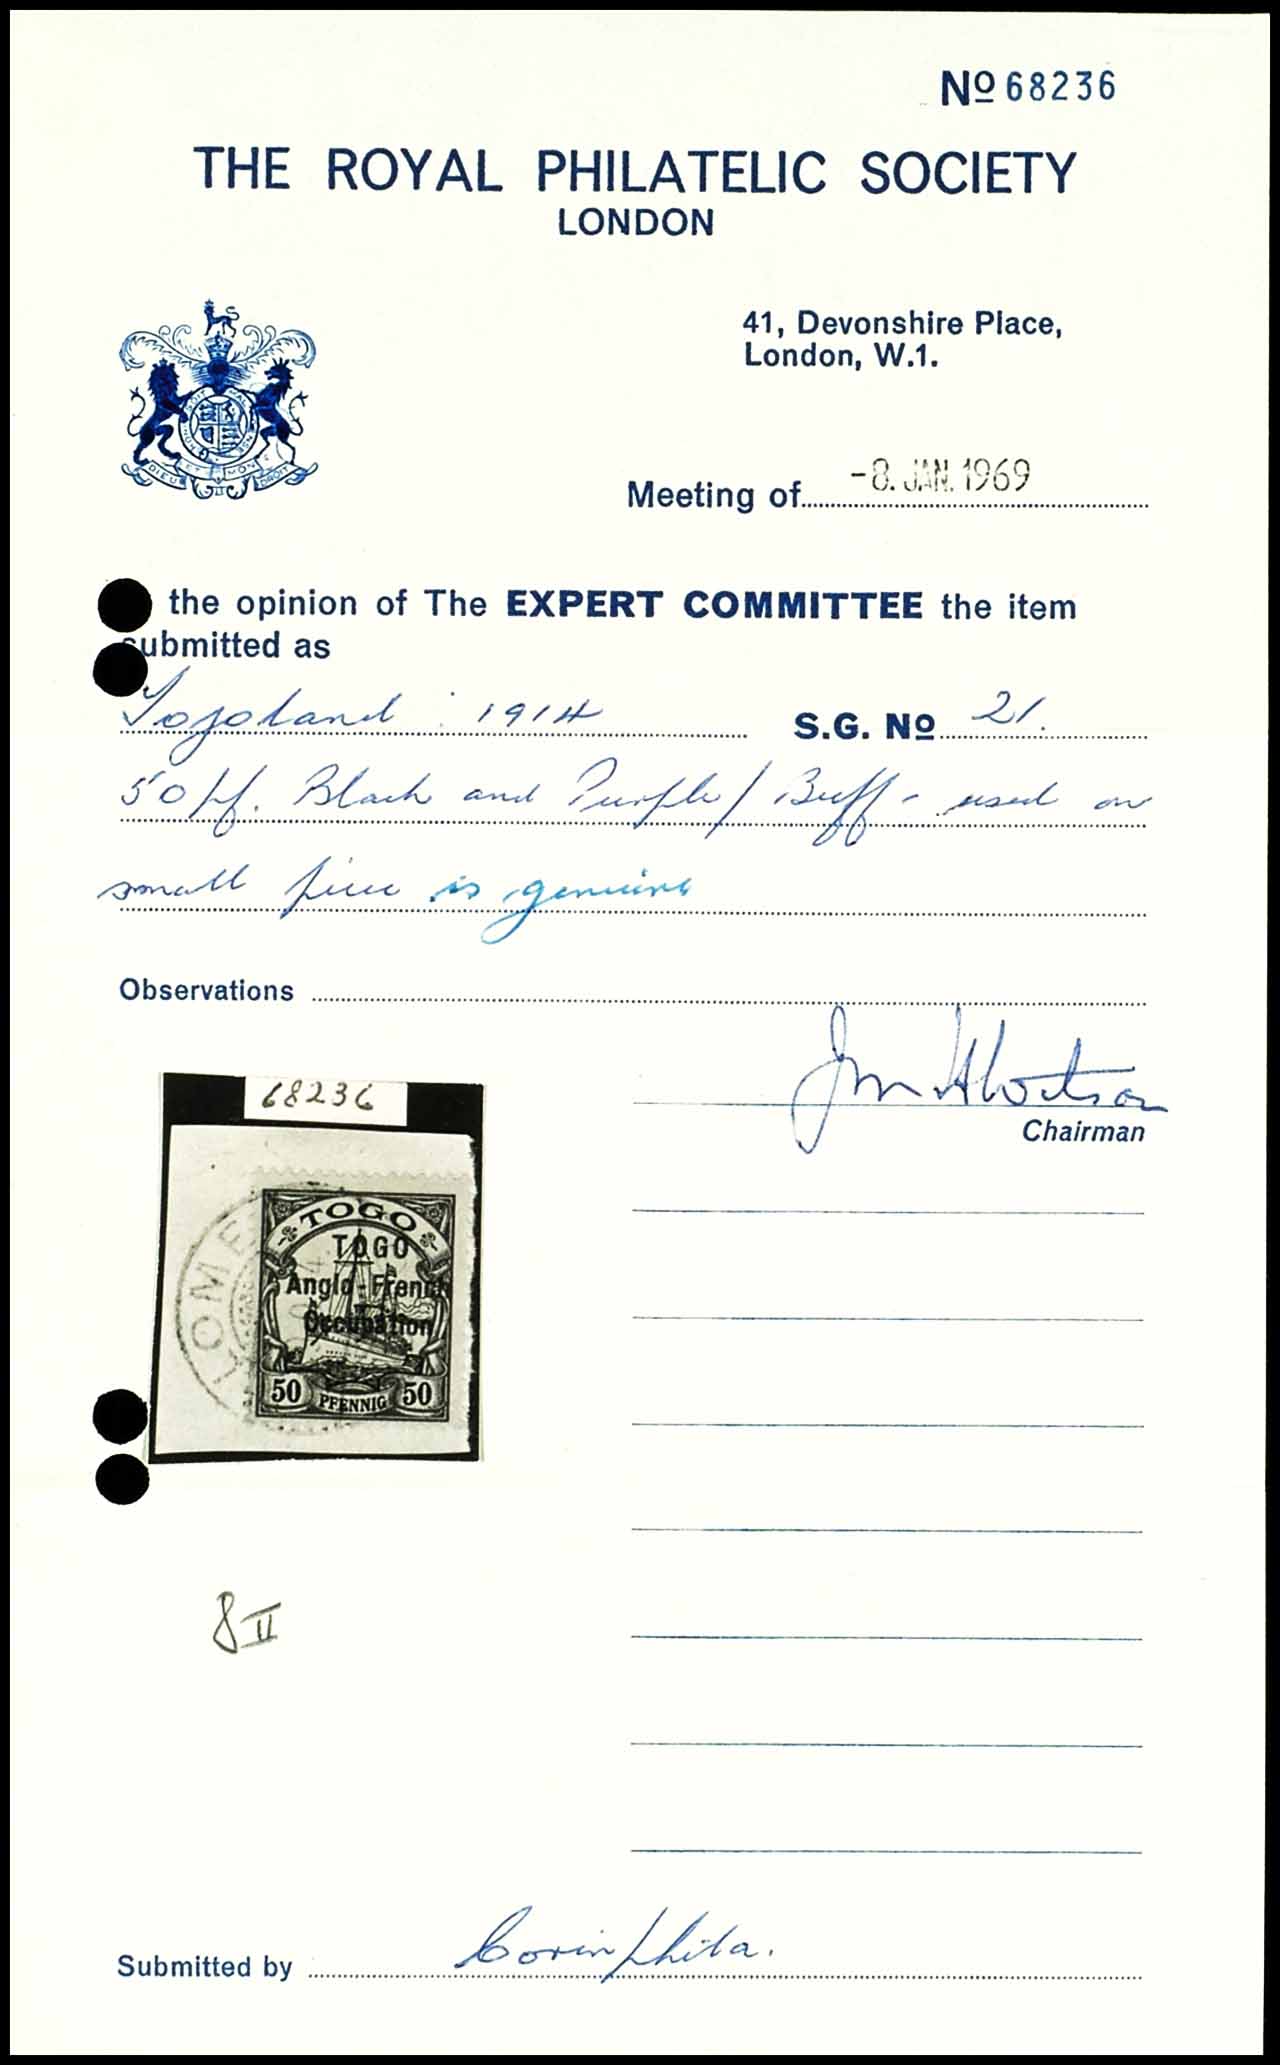 Nº 68236
THE ROYAL PHILATELIC SOCIETY
LONDON
41, Devonshire Place,
London, W.1.
DIEU ET MON DROIT
Meeting of -8. JAN. 1969
the opinion of The EXPERT COMMITTEE the item
submitted as
Togoland : 1914 S.G. Nº 21.
50 pf. Black and Purple / Buff - used on
small piece is genuine
Observations
68236
Chairman
LOME
TOGO
TOGO
Anglo-French
Occupation
50 PFENNIG 50
8 II
Submitted by Corinphila.